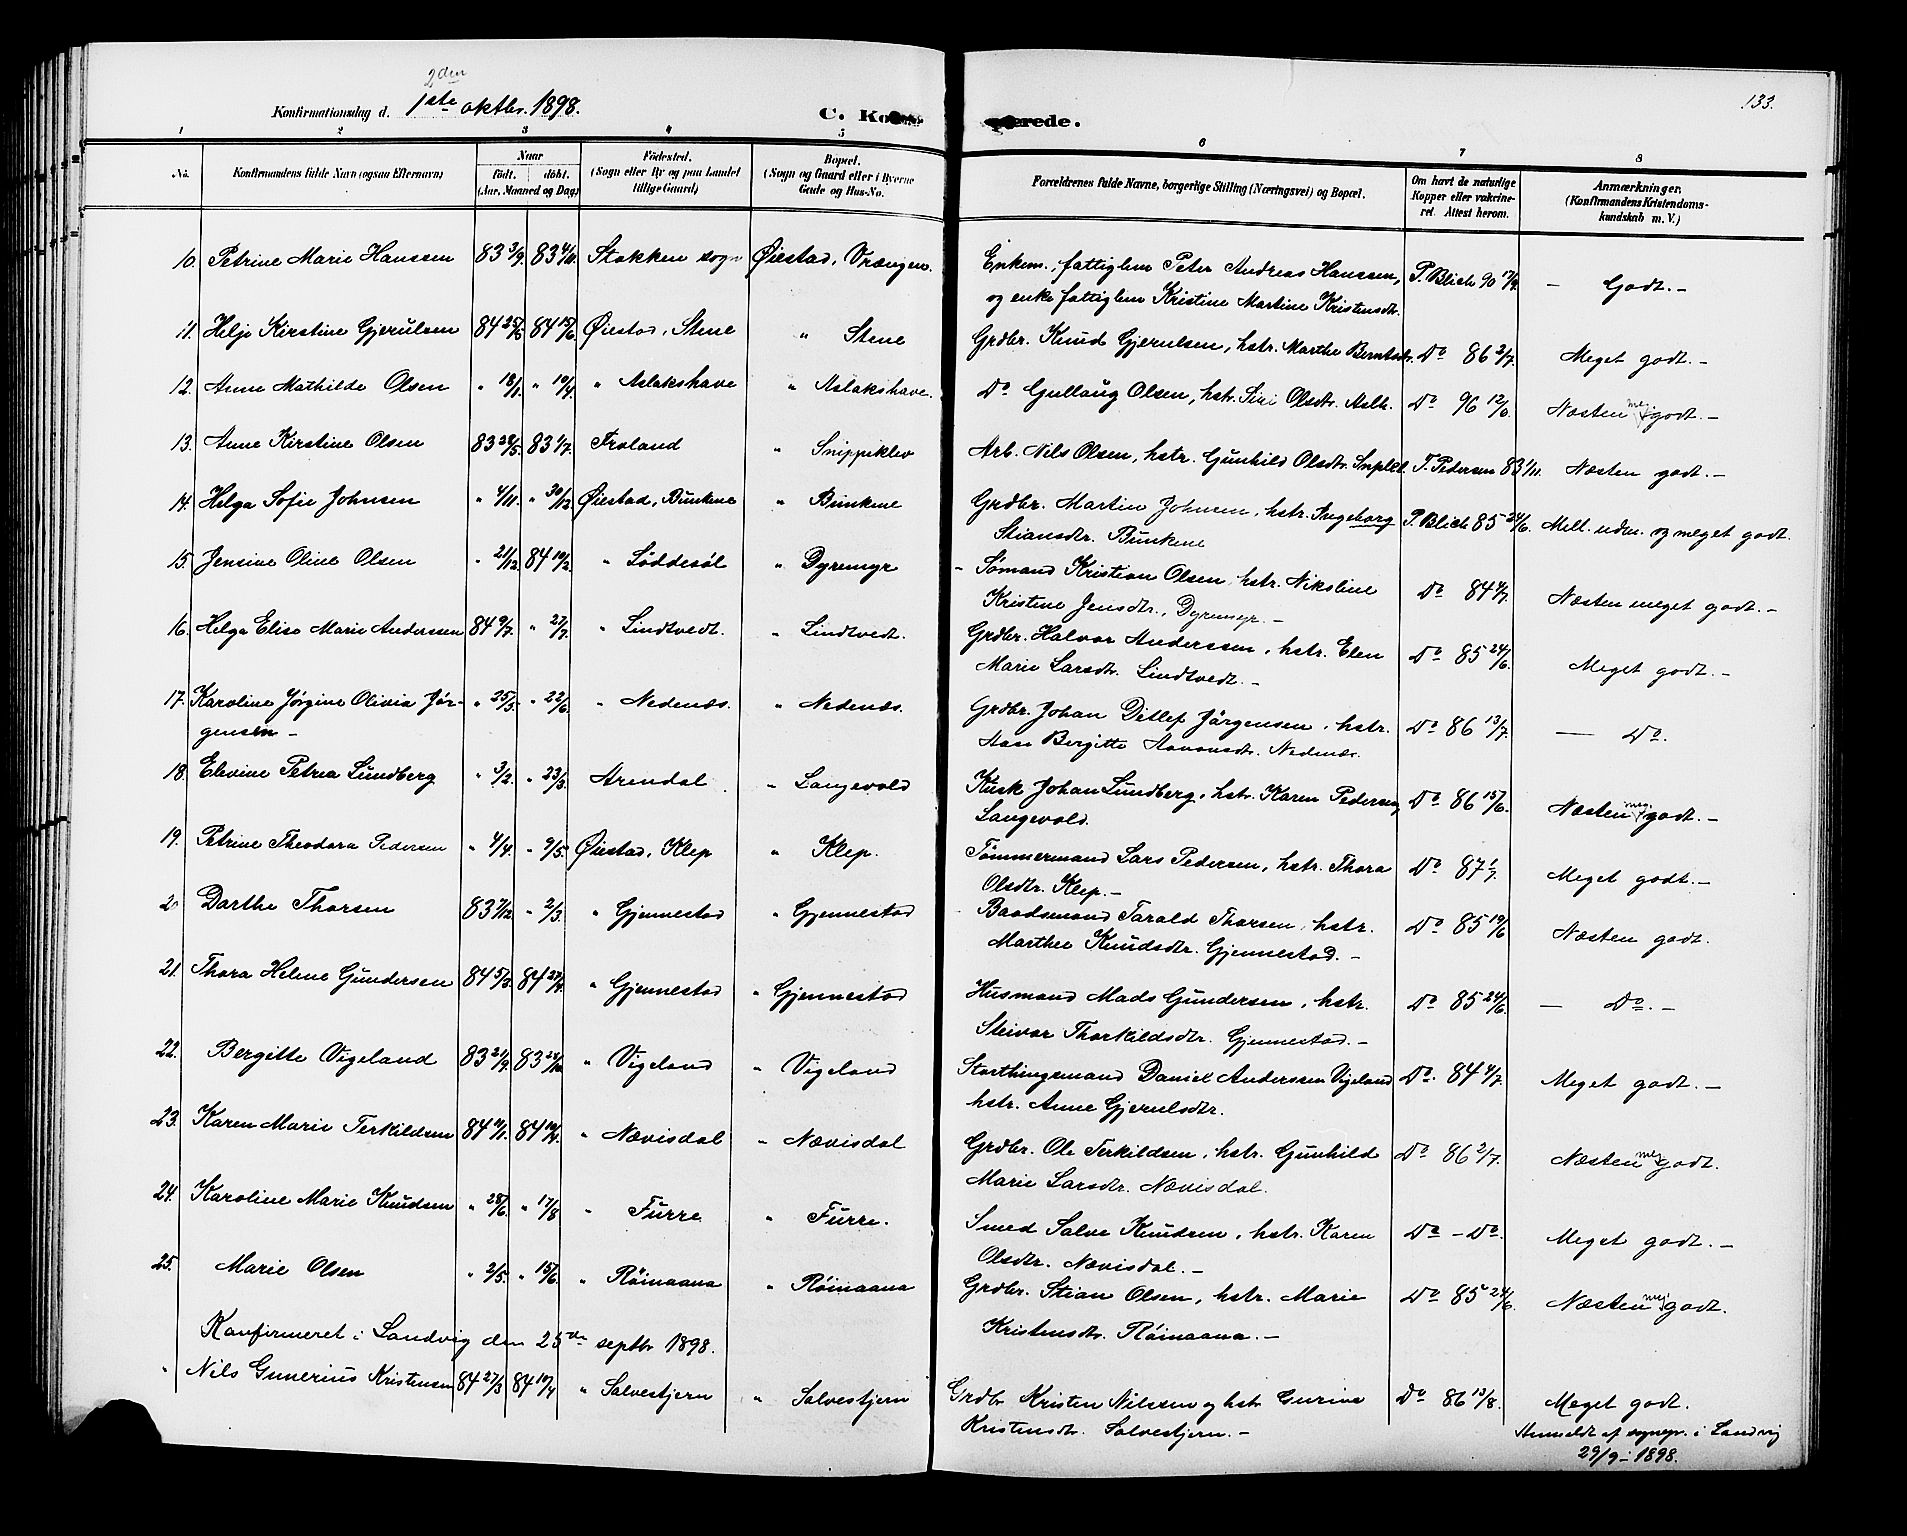 133.
2den
Konfirmationsdag d. 1ste oktbr. 1898.
C. Ko
rede.
1 2 3 4 5 6 7 8
No.
Konfirmandens fulde Navn (ogsaa Efternavn)
Naar
født. døbt.
(Aar, Maaned og Dag)
Fødested.
(Sogn eller By og paa Landet
tillige Gaard)
Bopæl.
(Sogn og Gaard eller i Byerne
Gade og Hus-No.
Forældrenes fulde Navne, borgerlige Stilling (Næringsvei) og Bopæl.
Om havt de naturlige
Kopper eller vakcine-
ret. Attest herom.
Anmærkninger.
(Konfirmandens Kristendoms-
kundskab m. V.)
10. Petrine Marie Hanssen 83 3/9. 83 4/11. Stokken sogn Øiestad, Vrængen. Enkem. fattiglem Peter Andreas Hanssen, P. Blich 90 17/9 — Godt. –
og enke fattiglem Kristine Martine Kristensdtr.
11. Helje Kirstine Gjerulsen 84 25/5 84 15/6 Øiestad, Stene " Stene Grdbr. Knud Gjerulsen, hstr. Marthe Berntsdtr. Do 86 2/7. Meget godt. –
12. Anne Mathilde Olsen " 18/1. " 10/4. " Aslakshave " Aslakshave. Do Gullaug Olsen, hstr. Siri Olsdtr. Aslh. Do 96 12/6. Næsten meg. godt. –
13. Anne Kirstine Olsen 83 28/5. 83 1/7. Froland " Snippiklev Arb. Nils Olsen, hstr. Gunhild Olsdtr. Snpkl. T. Pedersen 83 1/11. Næsten godt. –
14. Helga Sofie Johnsen " 4/11. " 30/12. Øiestad, Bünkene " Bünkene Grdbr. Martin Johnsen, hstr. Ingeborg P. Blich 85 24/6. Mell. uden. og meget godt.
Stiansdtr. Bünkene
15. Jensine Oline Olsen " 21/12. 84 10/2. " Løddesøl " Dyremyr – Sømand Kristian Olsen, hstr. Nikoline Do 84 4/7. Næsten meget godt. –
Kristine Jensdtr., Dyremyr. –
16. Helga Elise Marie Anderssen 84 9/7. " 27/7. " Lindtvedt. " Lindtvedt. Grdbr. Halvor Anderssen, hstr. Elen Do 85 24/6. Meget godt. –
Marie Larsdtr. Lindtvedt. –
17. Karoline Jørgine Olivia Jør- " 25/3. " 22/6. " Nedenæs. " Nedenæs. Grdbr. Johan Ditlef Jørgensen, hstr. Do 86 13/7. — Do.
gensen – Aase Bergitte Aavonsdtr. Nedenæs.
18. Elevine Petrea Lundberg " 3/2. " 23/3. Arendal " Langevold Kusk Johan Lundberg, hstr. Karen Pedersen Do 86 15/6. Næsten meg. godt. –
Langevold.
19. Petrine Theodora Pedersen " 4/4. " 9/5. Øiestad, Klep " Klep. Tømmermand Lars Pedersen, hstr. Thora Do 87 1/7. Meget godt. –
Olsdtr. Klep. –
20 Dorthe Thorsen 83 7/12. " 2/3. " Gjennestad " Gjennestad Baadsmand Tarald Thorsen, hstr. Do 85 19/6 Næsten godt.
Marthee Knudsdtr. Gjennestad. –
21. Thora Helene Gundersen 84 5/3. 84 27/4. " Gjennestad " Gjennestad Husmand Mads Gundersen, hstr. Do 85 24/6. — Do. –
Steivor Thorkildsdtr. Gjennestad. –
22. Bergitte Vigeland 83 21/9. 83 24/10. " Vigeland " Vigeland Storthingsmand Daniel Anderssen Vigeland Do. 84 4/7. Meget godt. –
hstr. Anne Gjerulsdtr.
23. Karen Marie Terkildsen 84 11/1. 84 14/4. " Nævisdal " Nævisdal Grdbr. Ole Terkildsen, hstr. Gunhild Do 86 2/7. Næsten meg. godt.
Marie Larsdtr. Nævisdal.
24. Karoline Marie Knudsen " 28/6. " 17/8 " Furre " Furre. Smed Salve Knudsen, hstr. Karen Do – Do. Meget godt. –
Olsdtr. Nævisdal. –
25. Marie Olsen " 2/5. " 15/6. " Røinaana " Røinaana Grdbr. Stian Olsen, hstr. Marie Do 85 24/6. Næsten meg. godt.
Kristensdtr. Røinaana. –
Konfirmeret i Landvig den 25de septbr 1898.
" Nils Gunerius Kristensen 84 27/3 84 14/4 " Salvestjern " Salvestjern Grdbr Kristen Nilssen og hstr Gurine Do 86 13/8. Meget godt.
Kristensdtr. Salvestjern. –
Anmeldt af sognepr. i Landvig
29/9 – 1898.